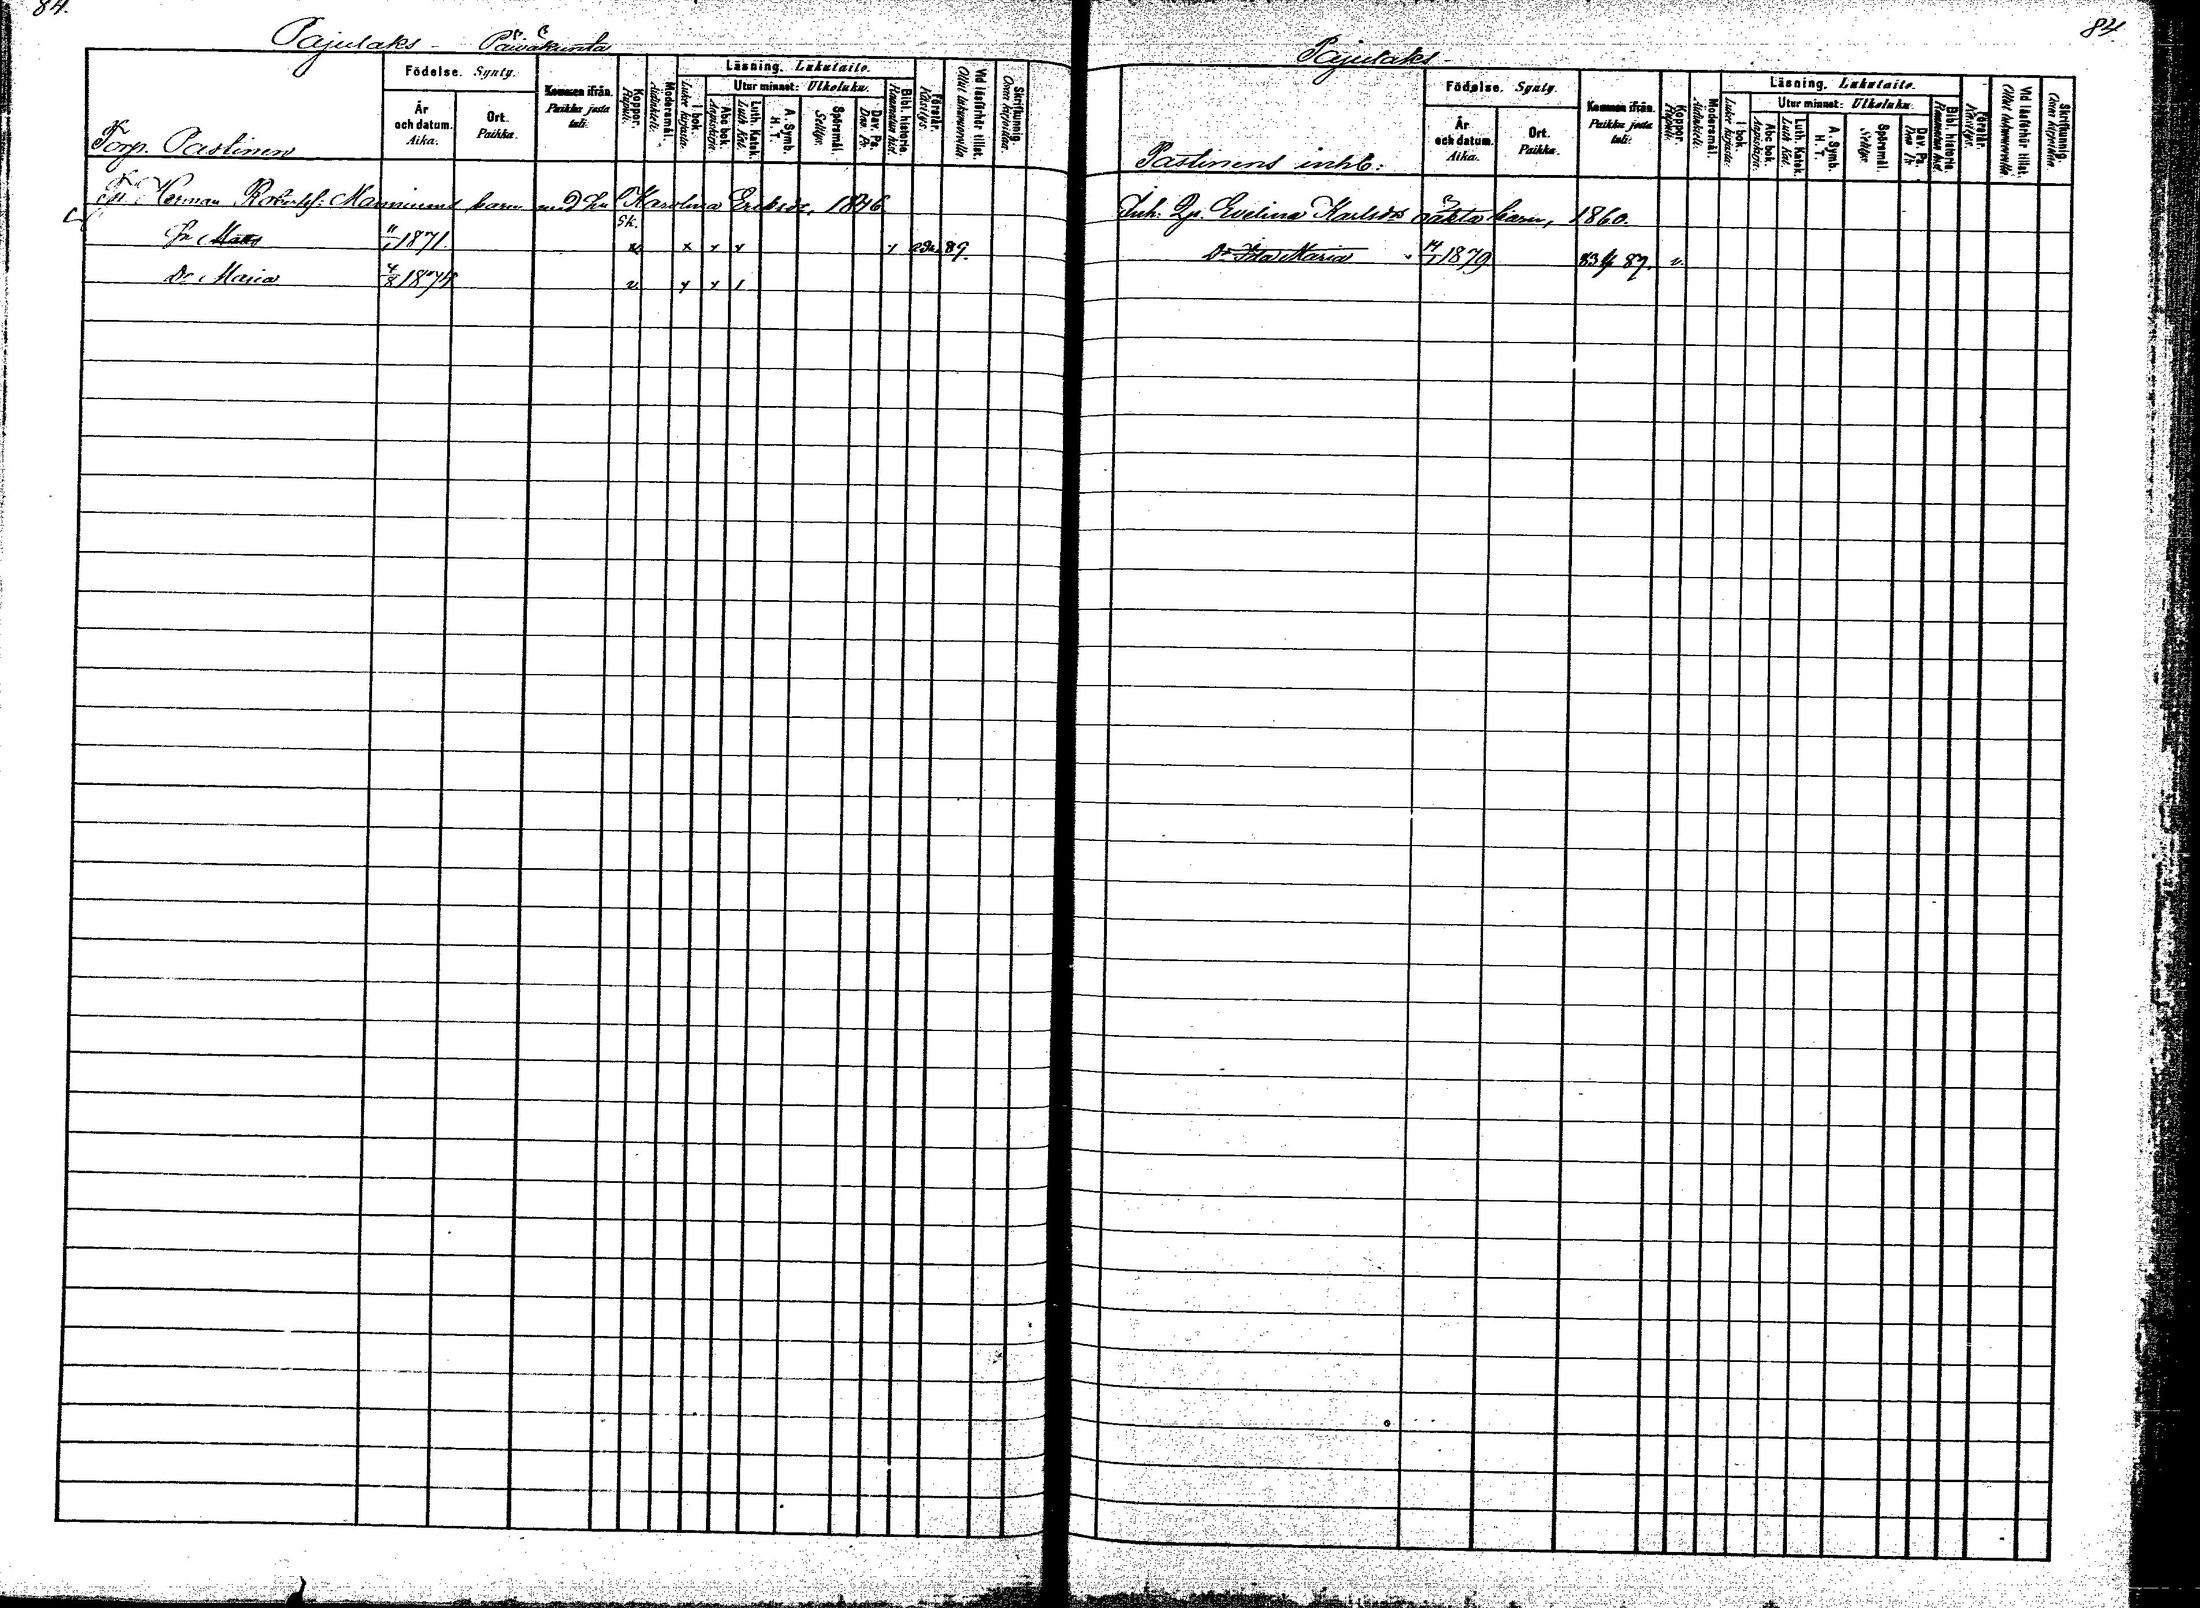 84.
Pajulaks - Päiväkunta
Födelse. Synty.
År och datum. Aika.
Ort. Paikka.
Kommen ifrån. Paikka josta tuli.
Koppor. Rupuli.
Modersmål. Äidinkieli.
Läsning. Lukutaito.
I bok. Luku kirjasta.
Utur minnet: Ulkoluku.
Abc bok. Aapiskirja.
Luth. Katek. Luth Kat.
A. Symb. H. T.
Spörsmål. Selitys.
Dav. Ps. Dav. Ps.
Bibl. historie. Raamatun hist.
Förstår. Käsitys.
Vid läsförhör tillst. Ollut lukuvuorolla
Skrifkunnig. Osaa kirjoittaa.
Torp. Pastinen
Herman Robertss: Manninens barn med hu Karolina Eriksdr, 1846
Sn Matts 11/1 1871. Sk. v x x x x 89.
Dr Maria 4/8 1874 v x x 1
84.
Pajulaks -
Födelse. Synty.
År och datum. Aika.
Ort. Paikka.
Kommen ifrån. Paikka josta tuli.
Koppor. Rupuli.
Modersmål. Äidinkieli.
Läsning. Lukutaito.
I bok. Luku kirjasta.
Utur minnet: Ulkoluku.
Abc bok. Aapiskirja.
Luth. Katek. Luth Kat.
A. Symb. H. T.
Spörsmål. Selitys.
Dav. Ps. Dav. Ps.
Bibl. historie. Raamatun hist.
Förstår. Käsitys.
Vid läsförhör tillst. Ollut lukuvuorolla
Skrifkunnig. Osaa kirjoittaa.
Pastinens inhb:
Inh: Qp. Evelina Karlsdrs oäkta barn, 1860.
Dr Ida Maria 14/1 1879 87. v.